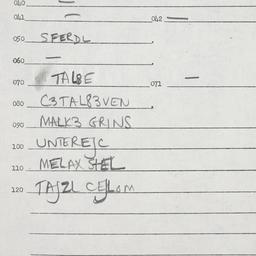 040 —
041 — 042 —
050 SFERDL
060 —
070 TAL8E 071 —
080 C3TAL83VEN
090 MALK3 GRINS
100 UNTEREJC
110 MELAX STEL
120 TAJZL CEJLOM